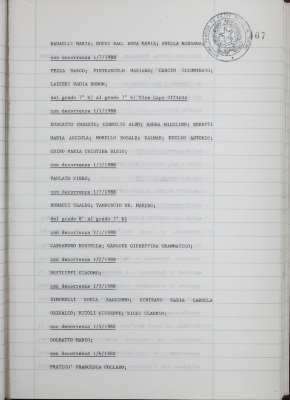 107
RADAELLI MARIA; ROSSI RAG. ANNA MARIA; AVELLA ROSSANA;
con decorrenza 1/7/1988
PEZZA MARCO; PIETRANGELO MARIANO; CARIDI ILLUMINATO;
LAZZERI NADIA
dal grado 7° bl al grado 7° bl Vice Capo Ufficio
con decorrenza 1/1/1988
BOSCATTO ORNELLA; CORNELIO ALDO; BERETTI
MARIA ANGIOLA; MORELLO ROSALBA; EUGLIO ANTONIO;
GUIDO MARIA CRISTINA
con decorrenza 1/3/1988
PAOLATO PIERO;
con decorrenza 1/7/1988
BOMACCI UBALDO; TAMBUSCIO DR. MARINO;
dal grado 8° al grado 7° bl
con decorrenza 1/1/1988
CARRARINO ROSSELLA; GANGUZE GIUSEPPINA GRAMMATICO;
con decorrenza 1/2/1988
DEFILIPPI GIACOMO;
con decorrenza 1/3/1988
SIMONELLI SONIA MARIA CARMELA
GRIFALCO; RITOLI GIUSEPPE; RICCI CLAUDIO;
con decorrenza 1/5/1988
DOLZATTO MARIO;
con decorrenza 1/6/1988
PRATICO' FRANCESCA COLLARO;